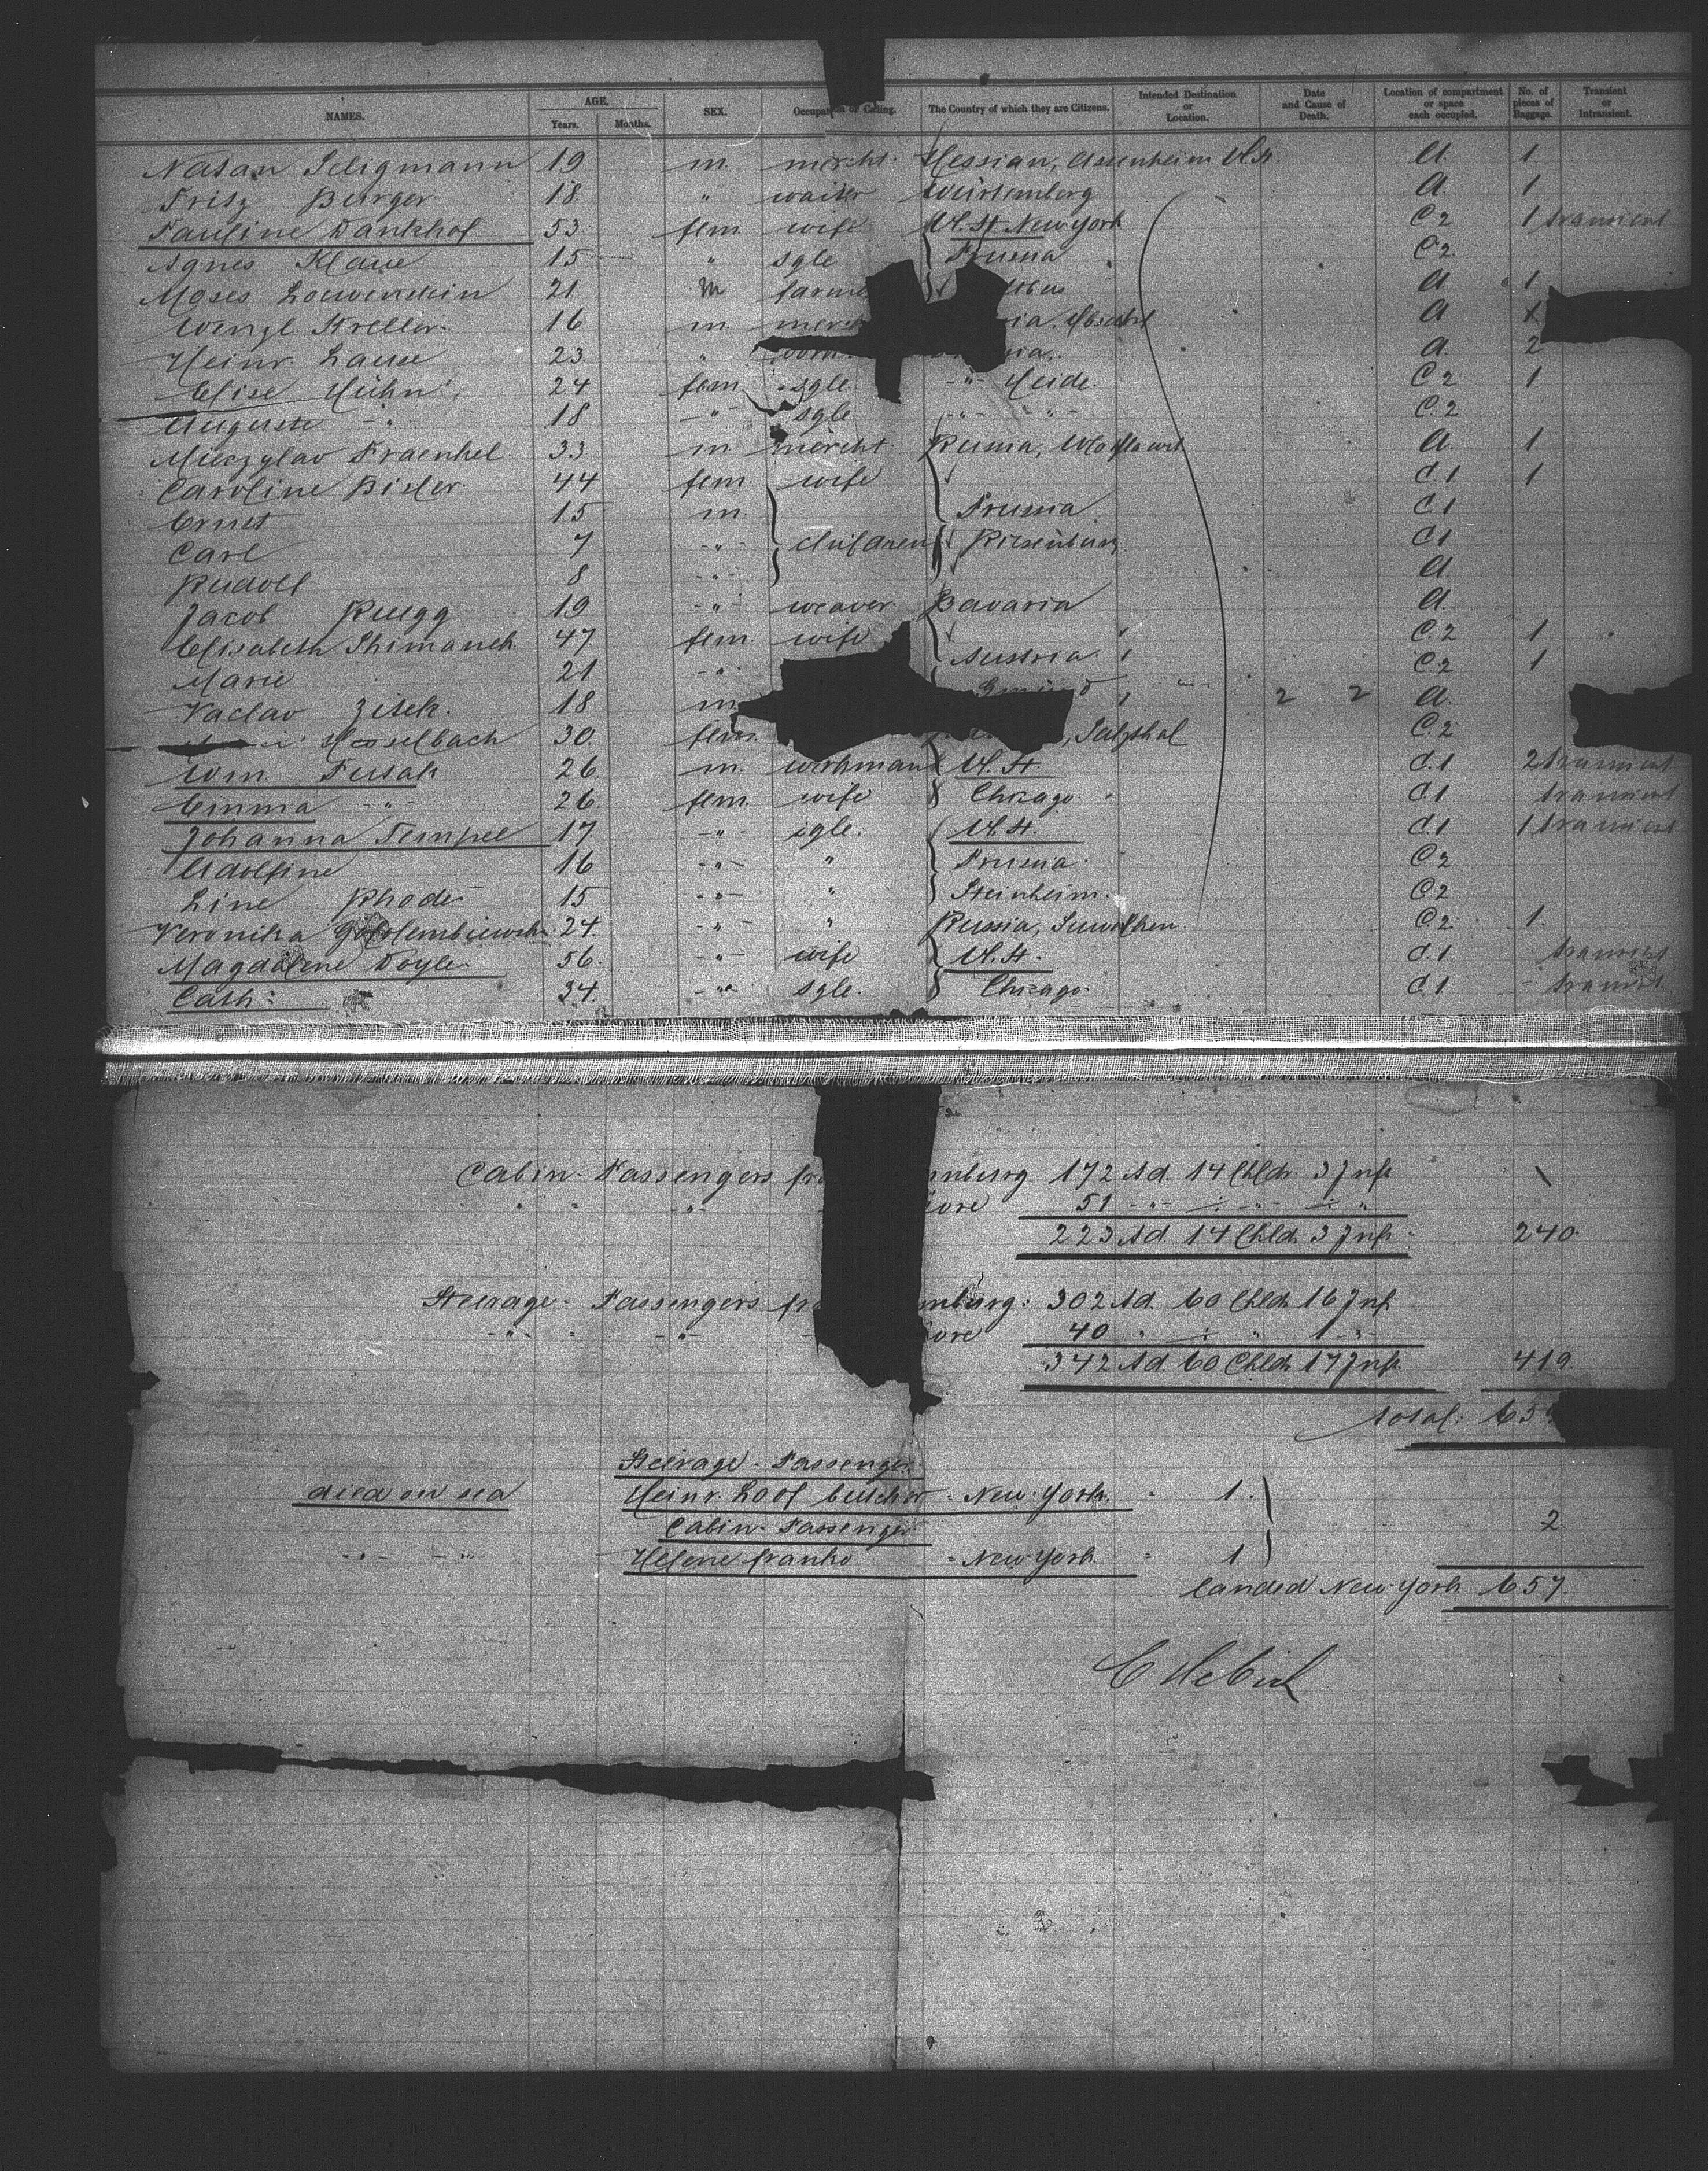 NAMES. AGE. Years. Months. SEX. Occupation or Calling. The Country of which they are Citizens. Intended Destination or Location. Date and Cause of Death. Location of compartment or space each occupied. No. of pieces of Baggage. Transient or Intransient.
Natan Seligmann 19 m. mercht. Hessian, Assenheim U.St. A 1
Fritz Burger 18 " waiter Würtemberg A. 1
Pauline Dankhof 53 fem. wife U. St. New York C2 1 transient
Agnes Klaue 15 " sgle Prussia C2
Moses Loewenstein 21 m farme A 1
Wenzl Kreller 16 m. merch ia. A 1
Heinr. Lauee 23 " ia. A. 2
Elise Hühn 24 fem. sgle. -"- Heide. C2 1
Auguste -"- 18 -"- sgle -"- -"- C.2
Mieczylav Fraenkel 33 m mercht. Russia, A. 1
Caroline Bisler 44 fem. wife C1 1
Ernst 15 m. Prussia C1
Carl 7 -"- children Riesenburg C1
Rudolf 8 -"- A.
Jacob Ruegg 19 -"- weaver Bavaria A.
Elisabeth Shimaneck 47 fem. wife C.2 1
Marie 21 -"- Austria C2 1
Vaclav Zisek. 18 m. 2 2 A.
Hesselbach 30. fem. , Salzthal C.2
Wm Fusak 26. m. workman U. St. C.1 2 transient
Emma -"- 26. fem. wife Chicago. C.1 transient
Johanna Tempel 17 -"- sgle. U. St. C.1 1 transient
Adolfine 16 -"- " Prussia C2
Line Rhode 15 -"- " Steinheim. C2
Veronika Gololembiewska 24. -"- " Russia, Suwalken. C2 1.
Magdalene Doyle. 56. -"- wife U. St. C.1 transient
Cath: 34. -"- sgle. Chicago. C.1 transient
Cabin-Passengers fr mburg 172 Ad. 14 Chldr. 3 Inf.
" " -"- vre 51 -"- -:- -"- -:- "
223 Ad. 14 Chldr. 3 Inf. 240.
Steerage-Passengers fr mburg: 302 Ad. 60 Chldr. 16 Inf
-"- -"- vre 40 " -:- " 1 -"-
342 Ad. 60 Chldr. 17 Inf. 419.
total: 659
Steerage-Passenger
died on sea Heinr. Loof butcher - New-York. 1.
Cabin-Passenger 2
-"- -"- Helene Franko - New-York 1
landed New-York 657.